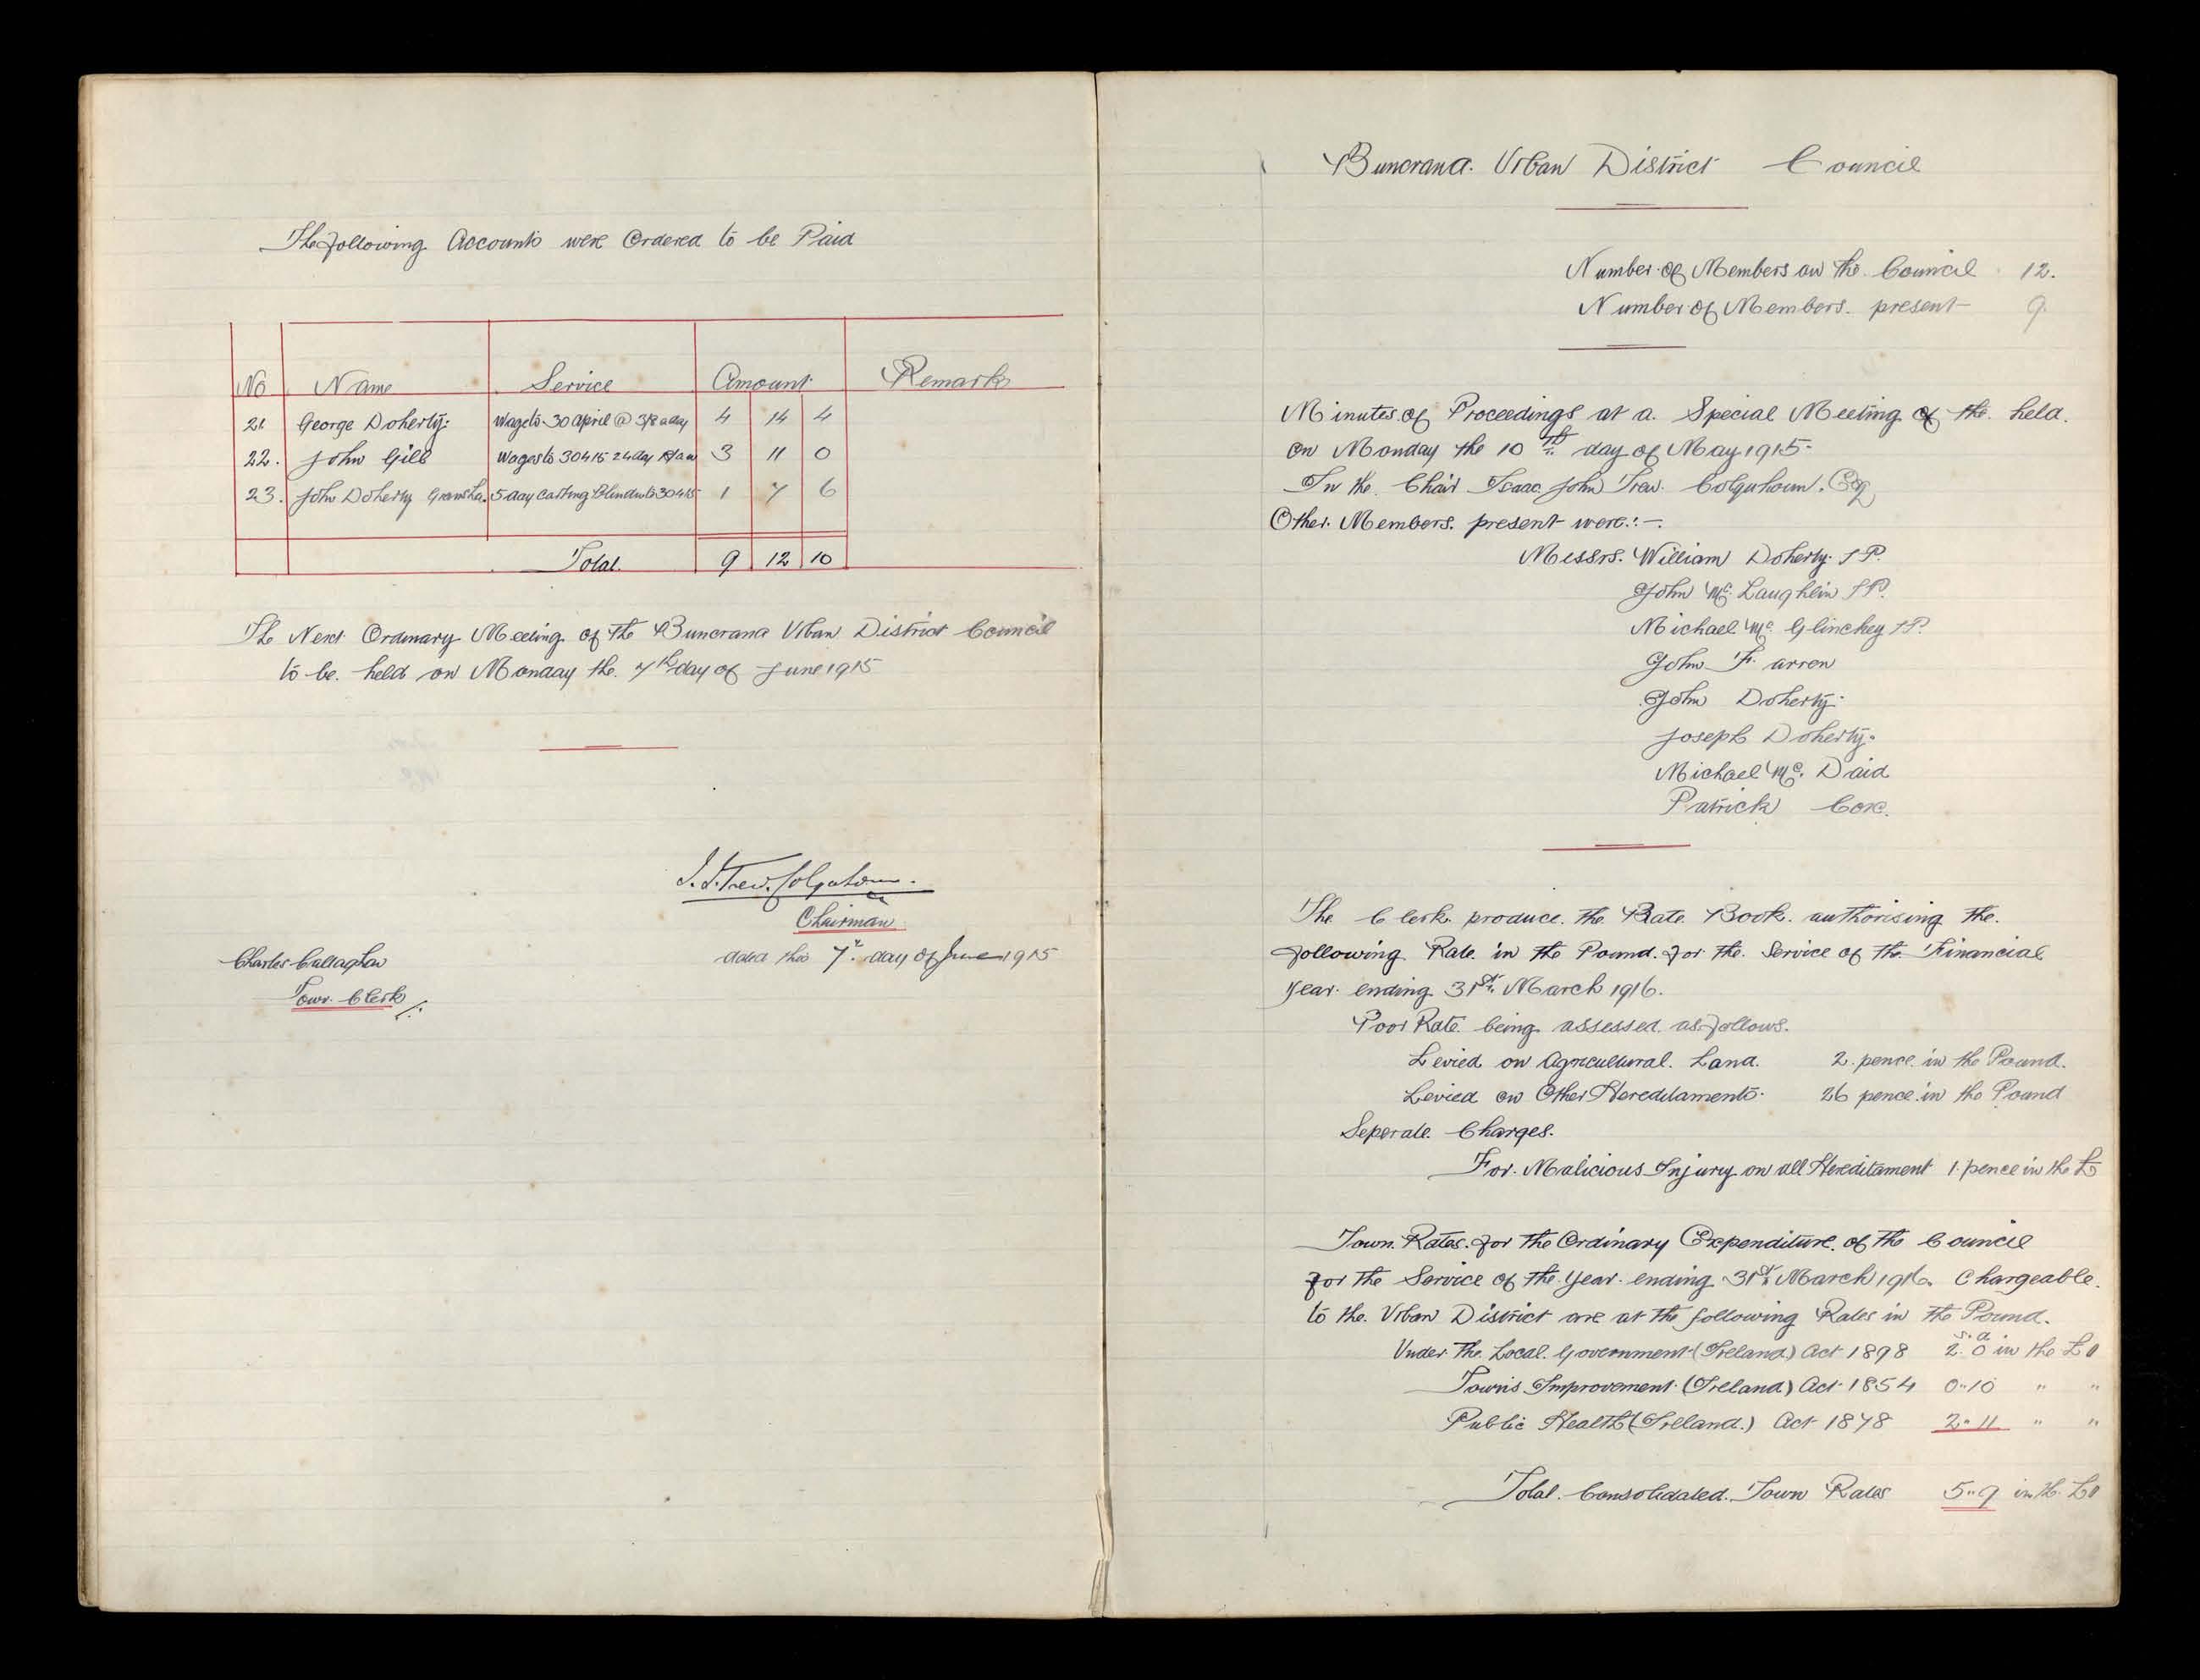 The following Accounts were Ordered to be Paid
No Name Service Amount Remark
21 George Doherty Wages to 30 April @ 3/8 a day 4 14 4
22. John Gill Wages to 30 4 15 24 day 3 11 0
23. John Doherty 5 day Carting to 30 4 15 1 7 6
Total 9 12 10
The Next Ordinary Meeting of the Buncrana Urban District Council
to be held on Monday the 7th day of June 1915
I. J. Trew. Colquhoun.
Chairman
dated this 7th day of June 1915
Charles Callaghan
Town Clerk
Buncrana Urban District Council
Number of Members on the Council 12.
Number of Members present 9
Minutes of Proceedings at a Special Meeting of the held
on Monday the 10th day of May 1915
In the Chair Isaac John Trew Colquhoun. Esq
Other Members present were:-
Messrs. William Doherty J P.
John Mc Laughlin J P.
Michael Mc Glinchey J P.
John Farren
John Doherty
Joseph Doherty
Michael Mc. Daid
Patrick Coxe.
The Clerk produce the Rate Book authorising the
following Rate in the Pound for the Service of the Financial
year ending 31st March 1916.
Poor Rate being assessed as follows.
Levied on Agricultural Land. 2 pence in the Pound.
Levied on Other Hereditaments 26 pence in the Pound
Seperate Charges.
For Malicious Injury on all Hereditament 1 pence in the £
Town Rates for the Ordinary Expenditure of the Council
for the Service of the Year ending 31st March 1916. Chargeable
to the Urban District are at the following Rates in the Pound.
s. d
Under The Local Government (Ireland) Act 1898 2. 0 in the £1
Towns Improvement (Ireland) Act 1854 0"10 " "
Public Health (Ireland.) Act 1878 2" 11 " "
Total Consolidated Town Rates 5"9 in the £1